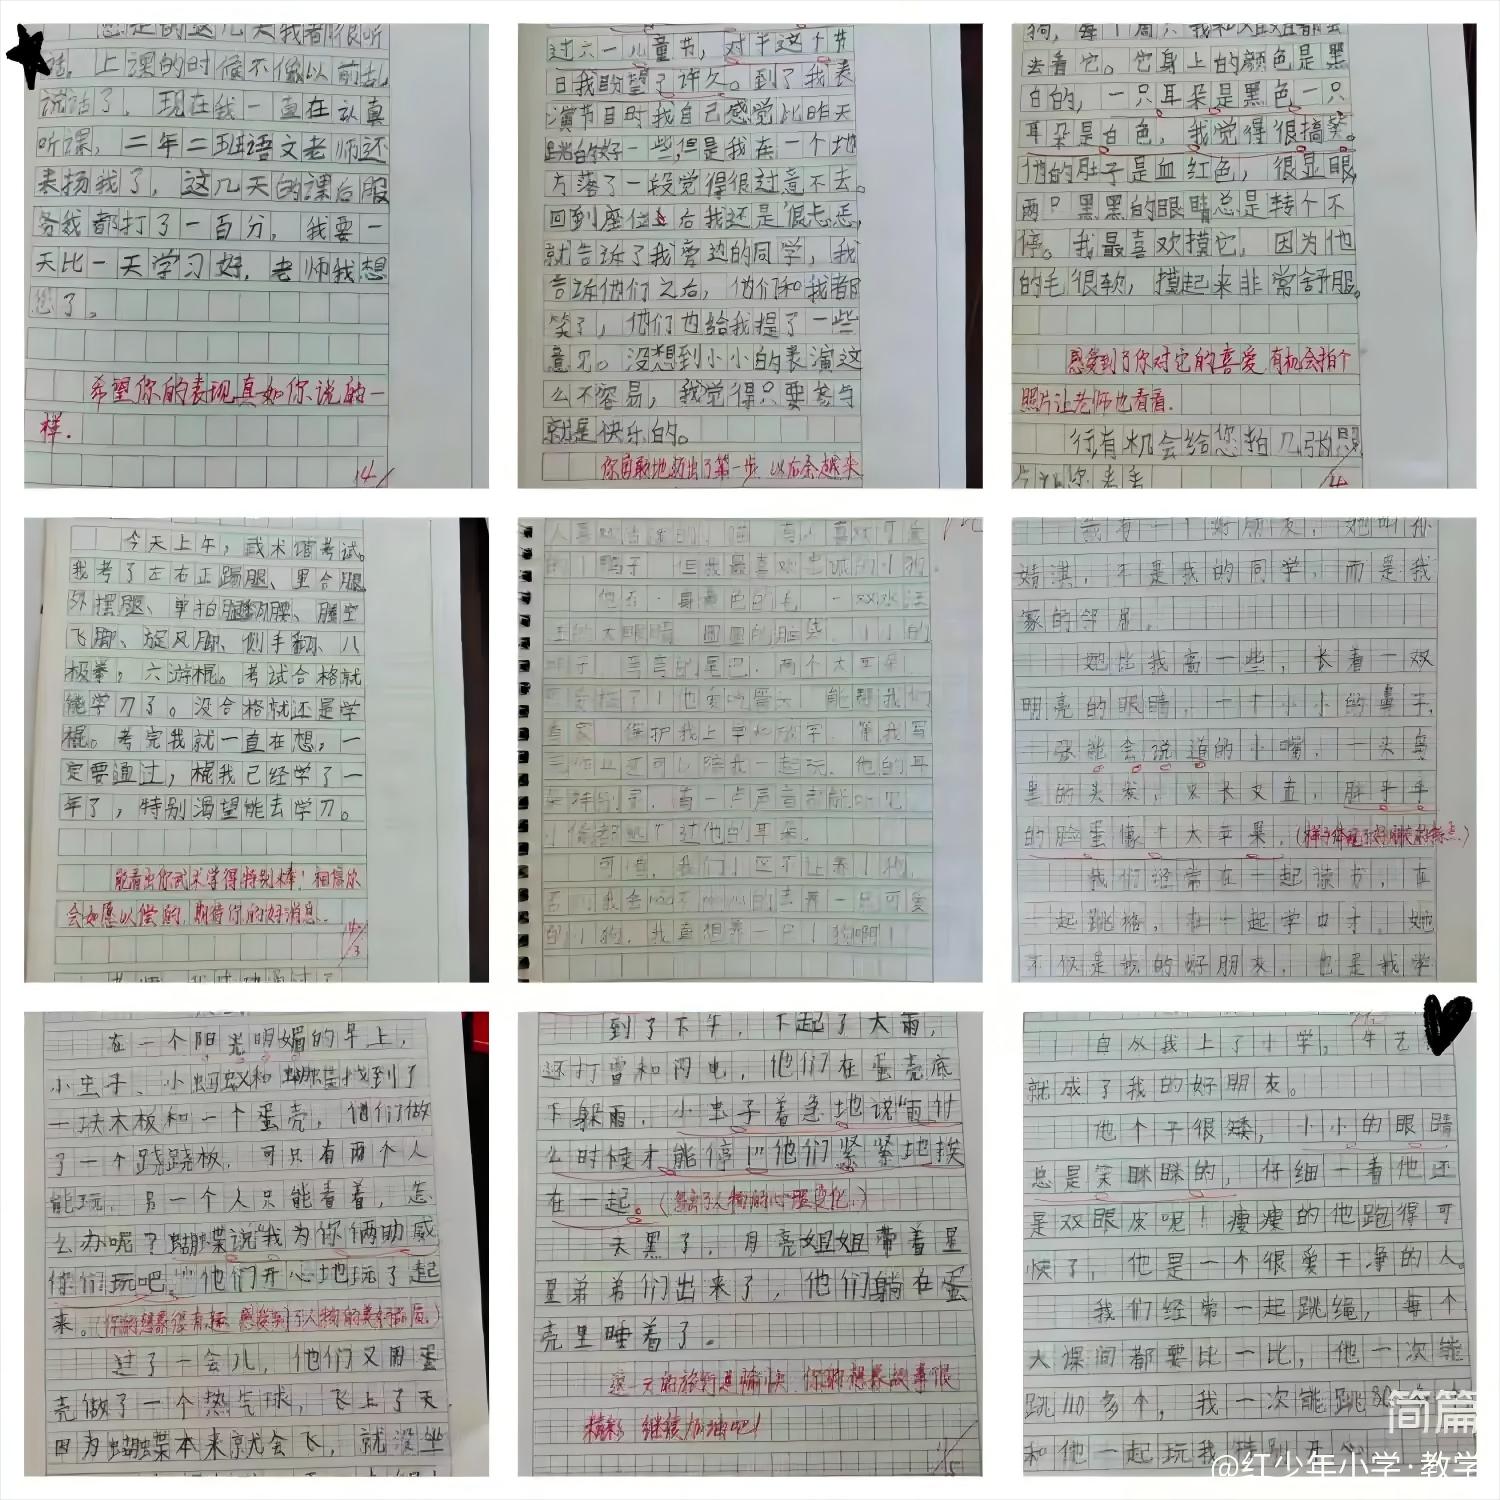 您走的这几天我都很听
话。上课的时候不像以前去
说话了，现在我一直在认真
听课，二年二班语文老师还
表扬我了，这几天的课后服
务我都打了一百分，我要一
天比一天学习好，老师我想
您了。
希望你的表现真如你说的一
样.
过六一儿童节，对于这个节
日我盼望了许久。到了我表
演节目时我自己感觉比昨天
好一些，但是我在一个地
方落了一段觉得很过意不去。
回到座位上后我还是
就告诉了我旁边的同学，我
告诉他们之后，他们和我都
笑了，他们也给我提了一些
意见。没想到小小的表演这
么不容易，我觉得只要参与
就是快乐的。
你勇敢地迈出了第一步 以后会越来
狗，每个周六我和姐姐都会
去看它。它身上的颜色是黑
白的，一只耳朵是黑色一只
耳朵是白色，我觉得很搞笑。
他的肚子是血红色，很显眼，
两只黑黑的眼睛总是转个不
停。我最喜欢摸它，因为他
的毛很软，摸起来非常舒服。
感受到了你对它的喜爱 有机会拍个
照片让老师也看看.
行有机会给您拍几张照
今天上午，武术馆考试。
我考了左右正踢腿、里合腿、
外摆腿、单拍腿、腾空
飞脚、旋风脚、侧手翻、八
极拳，六游棍。考试合格就
能学刀了。没合格就还是学
棍。考完我就一直在想，一
定要通过，棍我已经学了一
年了，特别渴望能去学刀。
能看出你武术学得特别棒！相信你
会如愿以偿的，期待你的好消息.
的小鸭子，但我最喜欢忠诚的小狗。
他有一身 色的毛，一双水汪
汪的大眼睛，圆圆的脑袋，小小的
鼻子，弯弯的尾巴，两个大耳朵
看家，保护我上学和放学，等我写
完作业还可以陪我一起玫，他的耳
朵特别灵，有一点声音都能听见，
小偷都逃不过他的耳朵。
可惜，我们小区不让养小狗，
否则我会 的去养一只可爱
的小狗，我真想养一只小狗啊！
我有一个好朋友，她叫孙
婧淇，不是我的同学，而是我
家的邻居。
她比我高一些，长着一双
明亮的眼睛，一个小小的鼻子，
一张能会说道的小嘴，一头乌
黑的头发，又长又直，胖乎乎
的脸蛋像个大苹果。
我们经常在一起读书，在
一起跳格，在一起学 ，她
不仅是我的好朋友，也是我学
在一个阳光明媚的早上，
小虫子、小蚂蚁和蝴蝶找到了
一块木板和一个蛋壳，他们做
了一个跷跷板，可只有两个人
能玩，另一个人只能看着，怎
么办呢？蝴蝶说“我为你俩助威
你们玩吧。”他们开心地玩了起
来。（你的想象很有趣，感受到了人物的美好品质。）
过了一会儿，他们又用蛋
壳做了一个热气球，飞上了天，
因为蝴蝶本来就会飞，就没坐
到了下午，下起了大雨，
还打雷和闪电，他们在蛋壳底
下躲雨，小虫子着急地说“雨什
么时候才能停！”他们紧紧地挨
在一起。（写出了人物的心理变化。）
天黑了，月亮姐姐带着星
星弟弟们出来了，他们躺在蛋
壳里睡着了。
这一天的旅行真愉快，你的想象故事很
精彩 继续加油吧！
自从我上了小学，牛艺
就成了我的好朋友。
他个子很矮，小小的眼睛
总是笑眯眯的，仔细一看他还
是双眼皮呢！瘦瘦的他跑得可
快了，他是一个很爱干净的人。
我们经常一起跳绳，每个
大课间都要比一比，他一次能
跳110多个，我一次能跳80
和他一起玩我特别开心
简篇
@红少年小学·教学